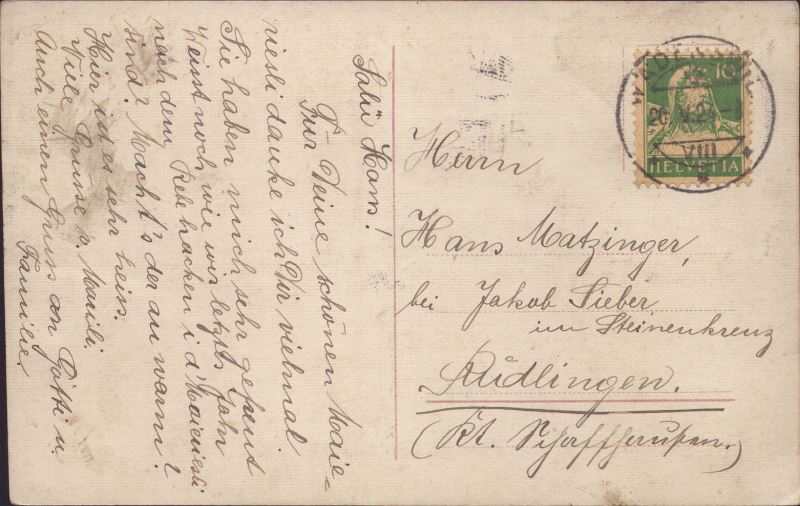 Salü Hans!
Für Deine schönen Maie-
riesli danke ich Dir vielmal.
Sie haben mich sehr gefreut
Weisst noch wie wir letztes Jahr
nach dem Rebehacken i d'Maieriesli
sind? Macht's der au warm?
Hier ist es sehr heiss.
Viele Grüsse v. Maili.
Auch einen Gruss an Götti u.
Familie.
WÄDENSWIL
26. V. 2
VIII
10
HELVETIA
Herrn
Hans Matzinger,
bei Jakob Sieber
im Steinenkreuz
Rüdlingen.
(Kt. Schaffhausen.)